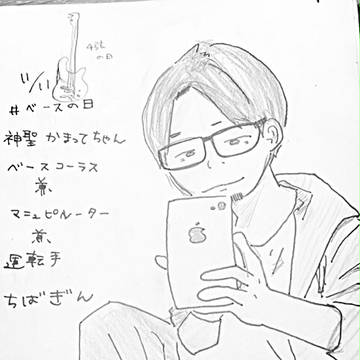 4弦
の日
11/11
#ベースの日
神聖かまってちゃん
ベースコーラス
兼、
マニュピルーター
兼、
運転手
ちばぎん